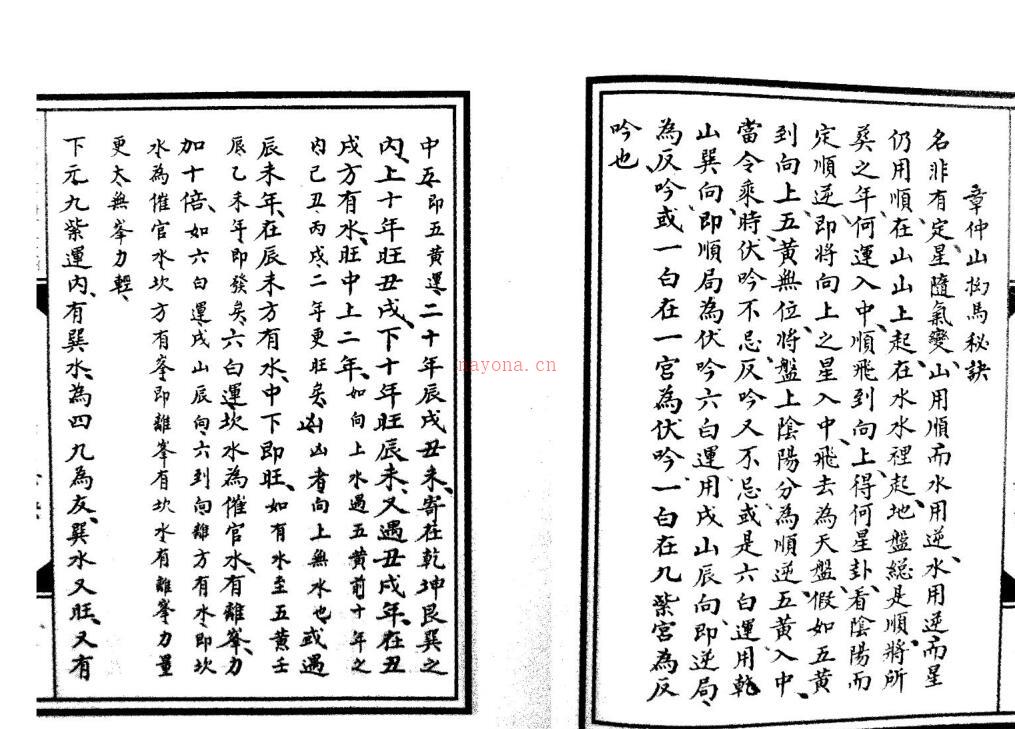 章仲山挨馬秘訣
名非有定星隨氣變山用順而水用逆水用逆而星
仍用順在山山上起在水水裡起地盤總是順將所
葵之年何運入中順飛到向上得何星卦看陰陽而
定順逆即將向上之星入中飛去為天盤假如五黃
到向上五黃無位將盤上陰陽分為順逆五黃入中
當令乘時伏吟不忌反吟又不忌或是六白運用乾
山巽向即順局為伏吟六白運用戌山辰向即逆局
為反吟或一白在一宮為伏吟一白在九紫宮為反
吟也
中五即五黃運二十年辰戌丑未寄在乾坤艮巽之
內上十年旺丑戌下十年旺辰未又遇丑戌年在丑
戌方有水旺中上二年如向上水遇五黃前十年之
內己丑丙戌二年更旺矣凶凶者向上無水也或遇
辰未年在辰未方有水中下即旺如有水至五黃壬
辰乙未年即發矣六白運坎水為催官水有離峯力
加十倍如六白運戌山辰向六到向離方有水即坎
水為催官水坎方有峯即離峯有坎水有離峯力量
更大無峯力輕
下元九紫運內有巽水為四九為友巽水又旺又有
nayona.cn